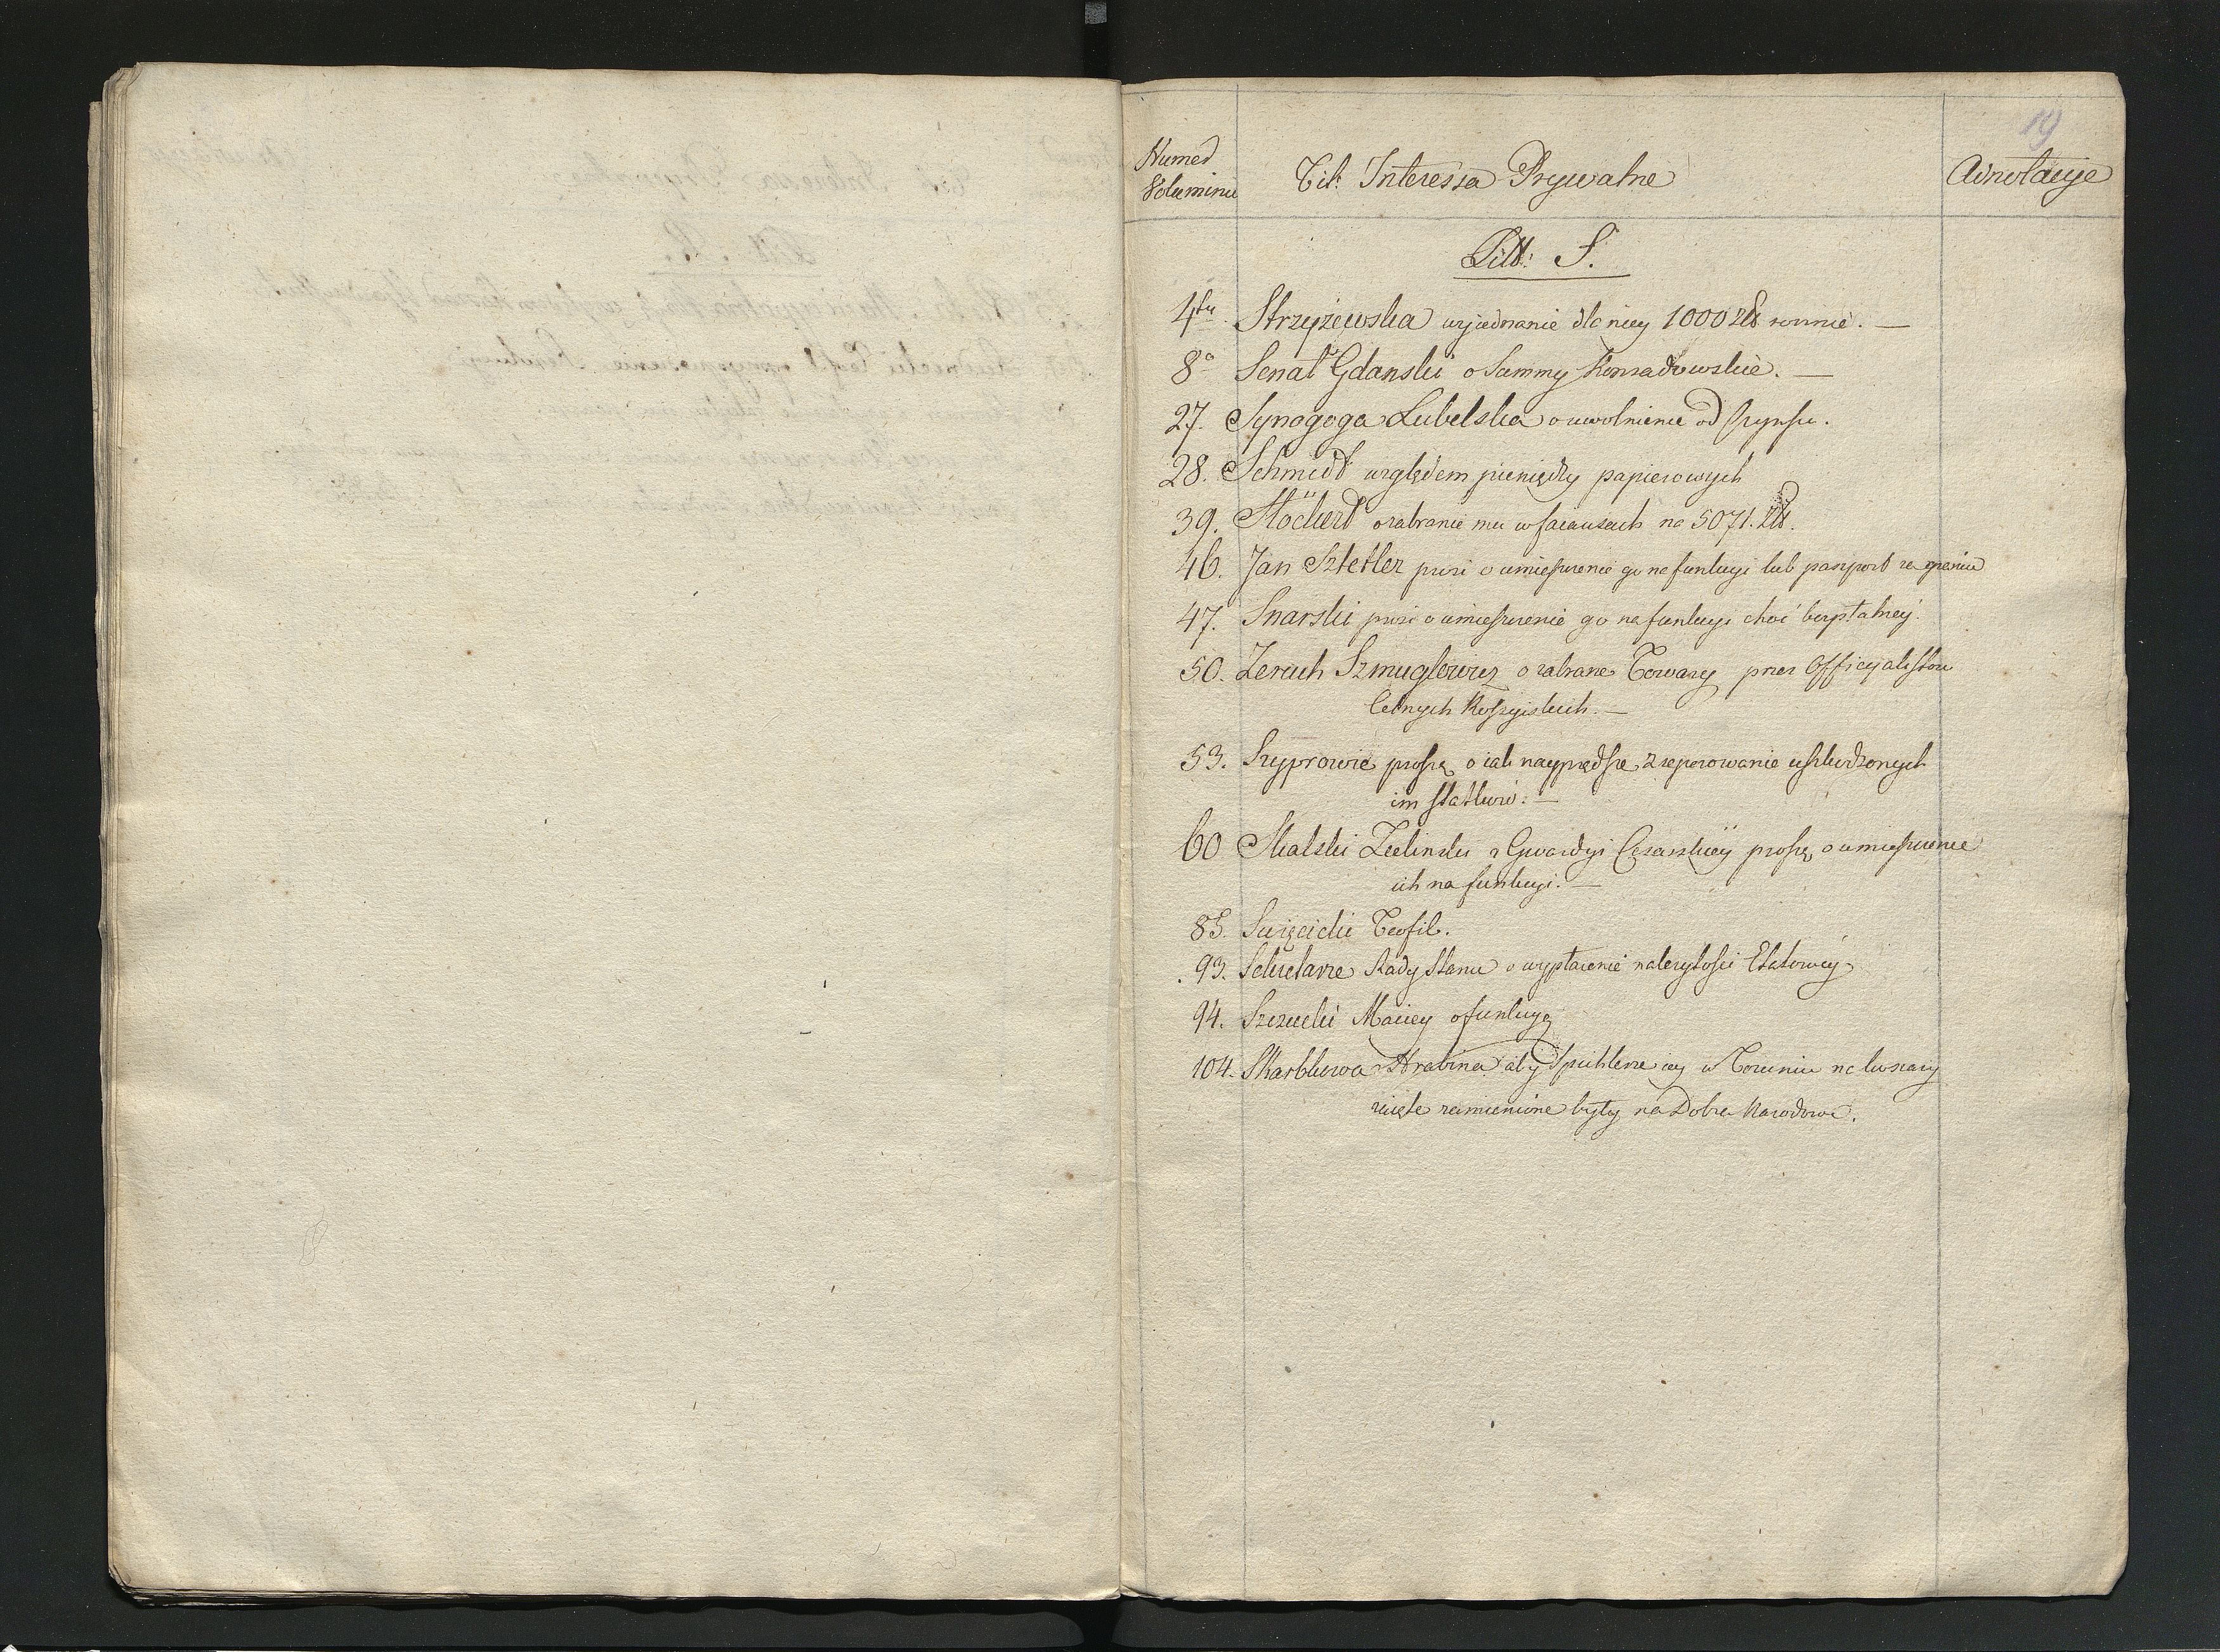 19
Numer Voluminu
Tit: Interessa Prywatne
Adnotacye
Litt: S.
4ta Strzyżewska wyjednanie dla niey 1000 Zł rocznie. —
8o Senat Gdanski o Summy Konradowskie. —
27. Synagoga Lubelska o uwolnienie od Czynszu.
28. Schmidt względem pieniędzy papierowych
39. Stöckert o zabranie mu w facauszach na 5071. Zł.
46. Jan Sztetler prosi o umieszczenie go na funkcyi lub pasport
47. Snarski prosi o umieszczenie go na funkcyi choć bezpłatney.
50. Zerach Szmuglewicz o zabrane Towary przez Officyalistow
Celnych Rossyiskich. —
53. Szyprowie proszą o iak nayprędsze zreperowanie uszkodzonych
im statków: —
60 Skalski Zielinski z Gwardyi Cesarskiey proszą o umieszczenie
ich na funkcyi. —
85. Swięcicki Teofil.
93. Sekretarze Rady Stanu o wypłacenie należytości Etatowey
94. Szczucki Maciey o funkcyą
104. Skarbkowa Hrabina aby Spichlerze iey w Toruniu na koszary
zajęte zamienione były na Dobra Narodowe.